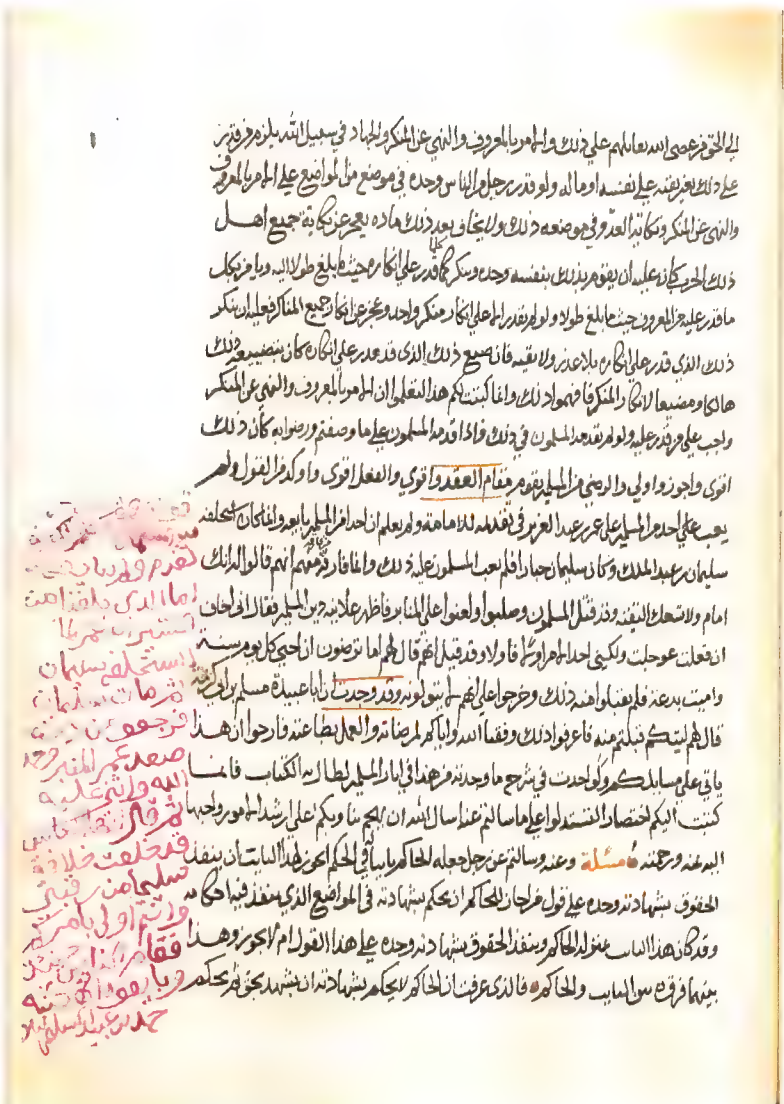 الى الحق فمن عصى الله يعاملهم على ذلك والامر بالمعروف والنهي عن المنكر والجهاد في سبيل الله يلزم من قدر
على ذلك بغير تقية على نفسه او ماله ولو قدر رجل من الناس وحده في موضع من المواضع على الامر بالمعروف
والنهي عن المنكر ونكاية العدو في موضعه ذلك ولا يخاف بعد ذلك ماده يعجز عن نكاية جميع اهل
ذلك الحرب كان عليه ان يقوم بذلك بنفسه وحده وينكر كلما قدر على انكاره حيث ما بلغ طولا اليه ويامر بكل
ما قدر عليه من المعروف حيث ما بلغ طولا ولو لم يقدر الا على انكار منكر واحد وعجز عن انكار جميع المناكر فعليه ان ينكر
ذلك الذي قدر على انكاره بلا عذر ولا تقية فان ضيع ذلك الذي قد قدر على انكاره كان بتضييعه ذلك
هالكا ومضيعا لانكار المنكر فافهموا ذلك وانما كتبت لكم هذا لتعلموا ان الامر بالمعروف والنهي عن المنكر
واجب على من قدر عليه ولو لم يقدمه المسلمون في ذلك فاذا قدمه المسلمون على ما وصفتم ورضوا به كان ذلك
اقوى واجوز واولى والرضى من المسلمين يقوم مقام العقد واقوى والفعل اقوى واوكد من القول ولم
يعب على احد من المسلمين على عمر بن عبد العزيز في تقدمه للامامة ولم يعلم ان احدا من المسلمين بايعه وانما كان استخلفه
سليمان بن عبد الملك وكان سليمان جبارا فلم يعب المسلمون عليه ذلك وانما فارقه منهم انهم قالوا له انك
امام ولا تسعك التقية وقد قتل المسلمون وصلبوا ولعنوا على المنابر فاظهر علانية دين المسلمين فقال اني اخاف
ان فعلت عوجلت ولكني احد الامر اولا فاولا وقد قيل انهم قال لهم اما ترضون ان احيي كل يوم سنة
واميت بدعة فلم يقبلوا منه ذلك وخرجوا على انهم لا يتولونه وقد وجدت ان ابا عبيدة مسلم بن ابي كريمة
قال لهم ليتكم قبلتم منه فاعرفوا ذلك وفقنا الله واياكم لمرضاته والعمل بطاعته فارجوا ان هذا
ياتي على مسايلكم ولو اخذت في شرح ما وجدته من هذا في اثار المسلمين لطال به الكتاب فانما
كتبت اليكم اختصارا لتستدلوا على ما سالتم عنه اسال الله ان يهجم بنا وبكم على ارشد الامور واحبها
اليه عنه ورحمته مسئلة وعنه وسالتم عن رجل جعله الحاكم نايبا في الحكم ايجوز لهذا النايب ان ينفذ
الحقوق بشهادته وحده على قول من اجاز للحاكم ان يحكم بشهادته في المواضع الذي ينفذ فيه احكامه
وقد كان هذا النايب يتولد الحاكم وينفذ الحقوق بشهادته وحده على هذا القول ام لا يجوز وهذا
بينهما فرق بين النايب والحاكم فالذي عرفت ان الحاكم لا يحكم بشهادته ان يشهد بحق ثم يحكم
اما الذي بلغنا من
استخلفه سليمان
ثم مات سليمان
صعد عمر المنبر وحمد
الله واثنى عليه
ثم قال ايها الناس
قد خلعت خلافة
سليمان من رقبتي
وانتم اولى بامركم
وبايعوه